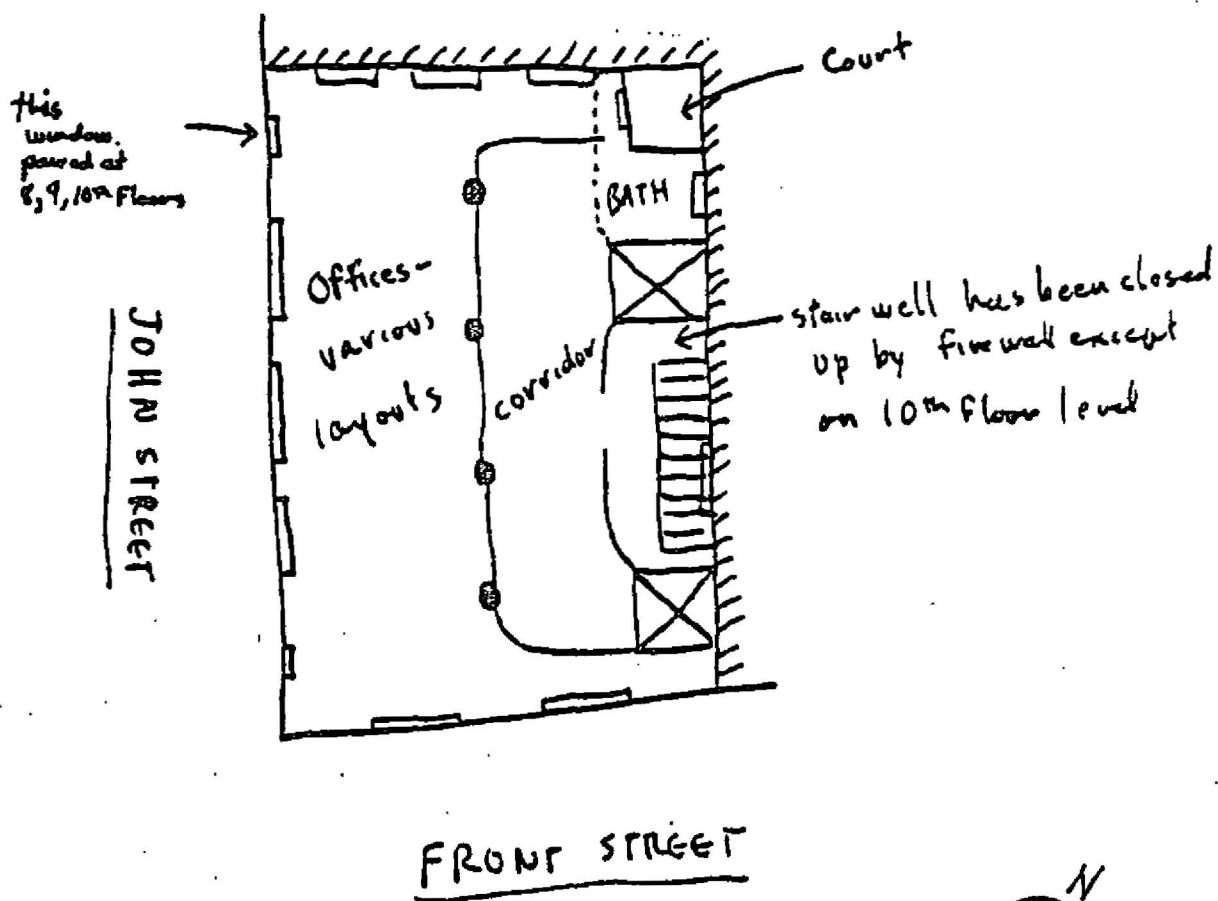 Court
this
window
paired at
8, 9, 10th Floors
BATH
Offices-
various
layouts
corridor
stairwell has been closed
up by firewall except
on 10th floor level
JOHN STREET
FRONT STREET
N